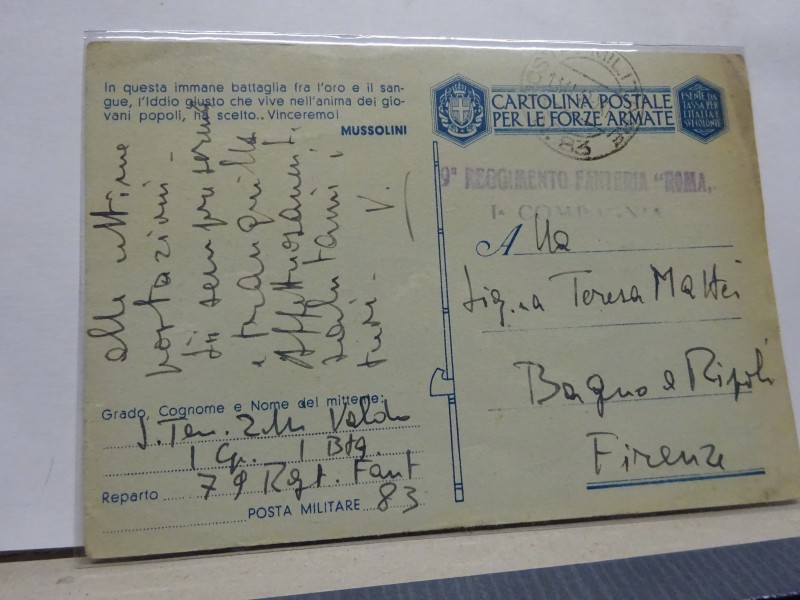 In questa immane battaglia fra l'oro e il san-
gue, l'Iddio giusto che vive nell'anima dei gio-
vani popoli, ha scelto.. Vinceremo!
MUSSOLINI
alle ultime
sii sempre serena
e tranquilla
Affettuosamente
salutami i
tuoi -
V.
Grado, Cognome e Nome del mittente:
S. Ten. Valdo
1 Cp. 1 Btg.
Reparto 79 Rgt. Fant
POSTA MILITARE 83
CARTOLINA POSTALE
PER LE FORZE ARMATE
ESENTE DA
TASSA PER
L'ITALIA E
SUE COLONIE
POSTA MILITARE
83
9° REGGIMENTO FANTERIA "ROMA"
1a COMPAGNIA
Alla
Sig.na Teresa Mattei
Bagno a Ripoli
Firenze